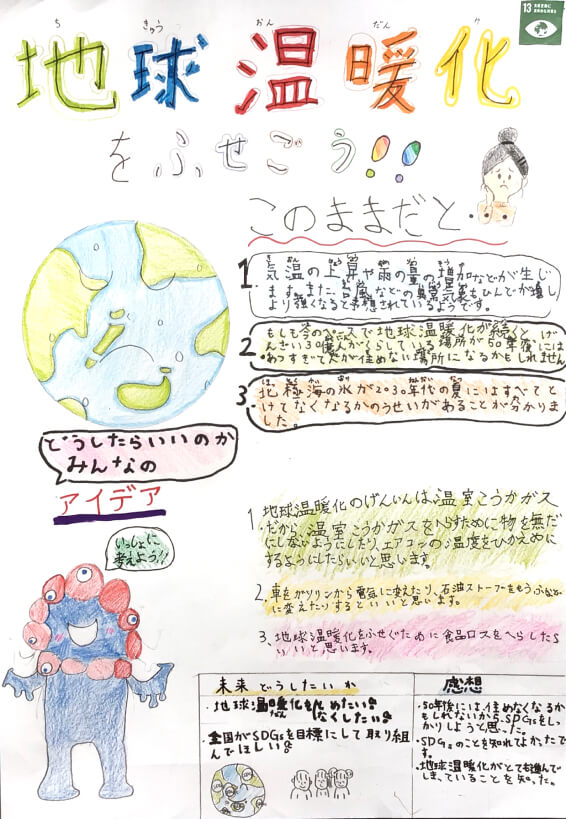 13
地球温暖化
ち きゅう おん だん か
をふせごう!!
このままだと・・
1. 気温の上昇や雨の量の増加などが生じ
ます。また、台風などの異常気象もひんぱんが増し
より強くなると予想されているようです。
2 もしも今のペースで地球温暖化が続くと、げ
んざい30億人がくらしている場所が50年後には
あつすぎて人が住めない場所になるかもしれません
3. 北極海の氷が2030年代の夏にはすべてと
けてなくなるかのうせいがあることが分かりま
した。
どうしたらいいのか
みんなの
アイデア
いっしょに
考えよう!!
1 地球温暖化のげんいんは、温室こうかガス
だから、温室こうかガスをへらすために物を無だ
にしないようにしたり、エアコンの温度をひかえめに
するようにしたらいいと思います。
2. 車をガソリンから電気に変えたり、石油ストーブを
に変えたりするといいと思います。
3、地球温暖化をふせぐために食品ロスをへらしたら
いいと思います。
未来どうしたいか
・地球温暖化をとめたい。
なくしたい。
・全国がSDGsを目標にして取り組
んでほしい。
感想
・50年後には、住めなくなるか
もしれないから、SDGsをしっ
かりしようと思った。
・SDGsのことを知れてよかったで
す。
・地球温暖化がとても進んで
しまっていることを知った。